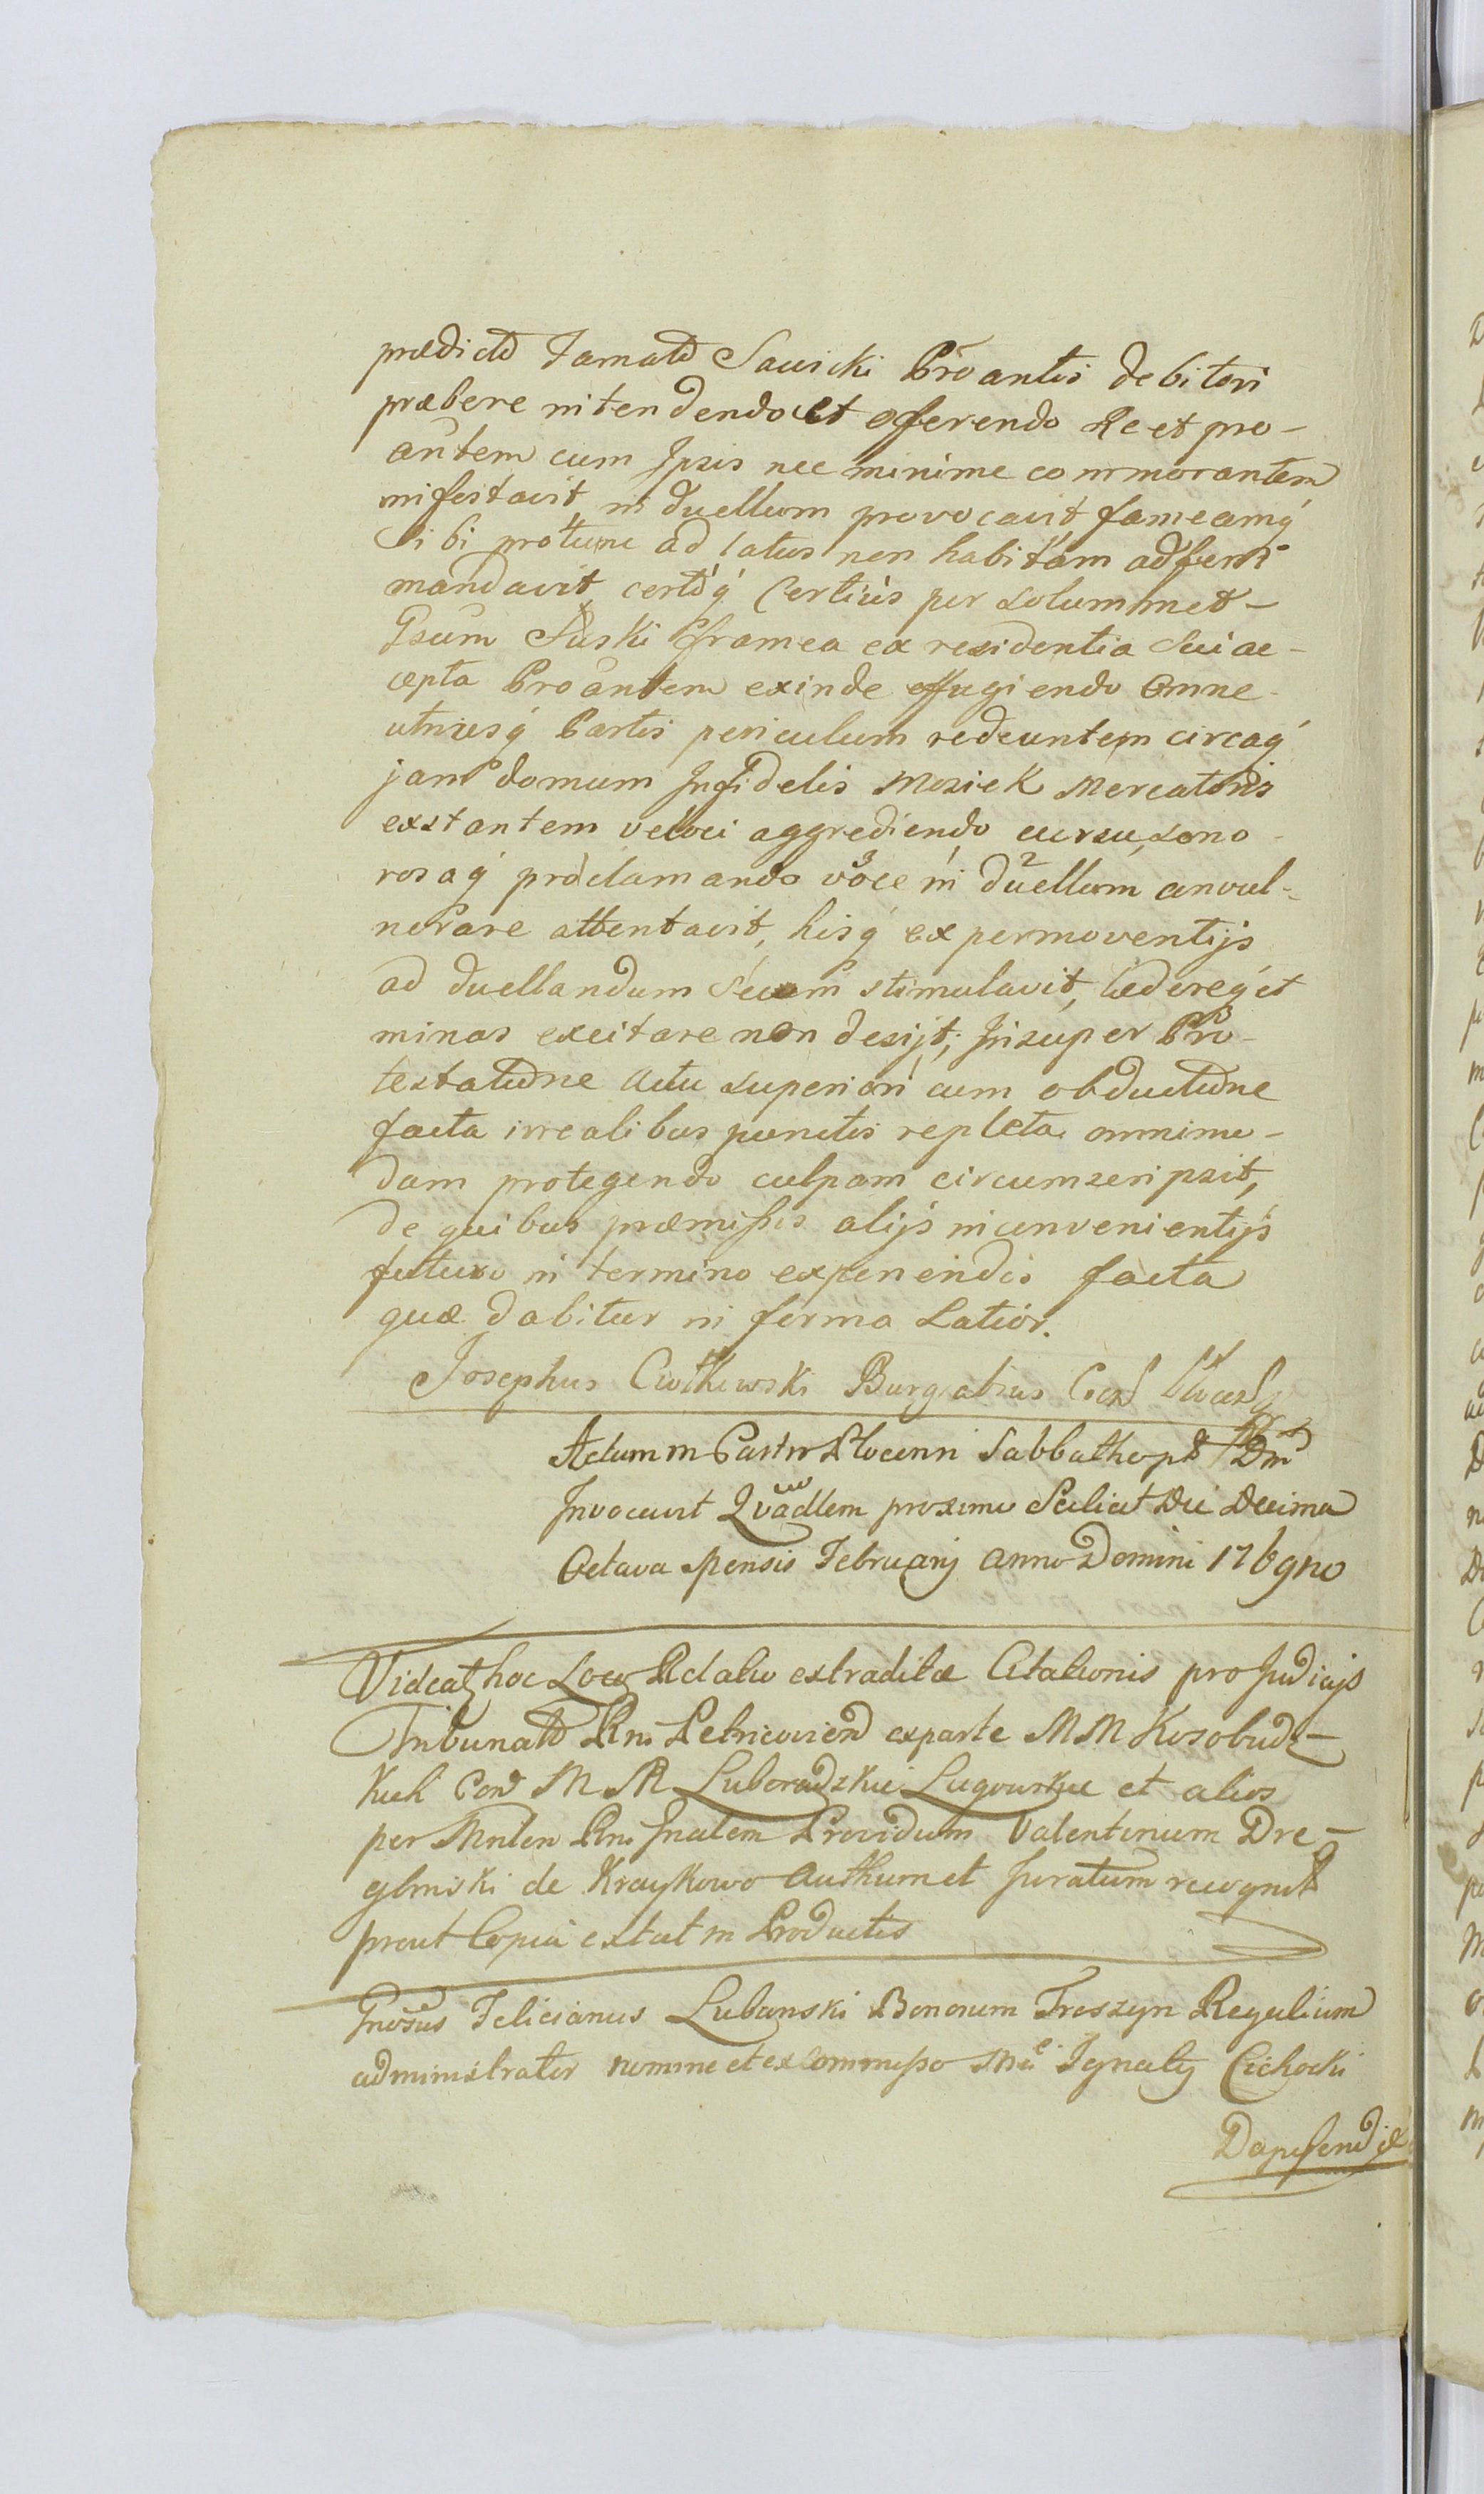 prædicto Famato Sawicki Proantis debitori
præbere nitendendo et oferendo Re et pro-
antem cum Ipsis nec minime commorantem
nifestavit, in duellum provocavit frameamq́
Sibi protunc ad latus non habitam adferri
mandavit, certoq́ Certius per solummet-
Ipsum Suski framea ex residentia Sui ac-
cepta Proantem exinde effugiendo omne
utriusq́ Partis periculum redeuntem circaq́
jam domum Infidelis Mosiek Mercatoris
exstantem veloci aggrediendo cursu, sono-
rosaq́ proclamando voce in duellum anvul-
nerare attentavit, hisq́ ex permoventijs
ad duellandum Secum stimulavit, lædereq́ et
minas excitare non desijt; Insuper Pro-
testatione actu superiori cum obductione
facta irrealibus punctis repleta omnimo-
dam protegendo culpam circumscripsit,
de quibus præmissis alijs inconvenientijs
futuro in termino exponendis facta
quæ dabitur in forma Latior.
Josephus Ciotkowski Burgrabius
Actum in Castro Sabbatho Dnica
Invocavit proxime Scilicet Die Decima
Octava Mensis Februarij Anno Domini 176gno
Videat hoc Loco Relatio extraditæ Citationis pro Judicijs
Tribunalis Rni Petricovien exparte MM Kosobudz-
kich Con MM Luboradzkie Lugowskie et alios
per Mnlem Rni Gnalem Providum Valentinum Dre-
glinski de Kraykowo Authum et Juratum recognit
prout Copia extat in Productis
Gnosus Felicianus Lubanski Bonorum Treszyn Regalium
administrator nomine et ex commisso Mci Ignatij Cichocki